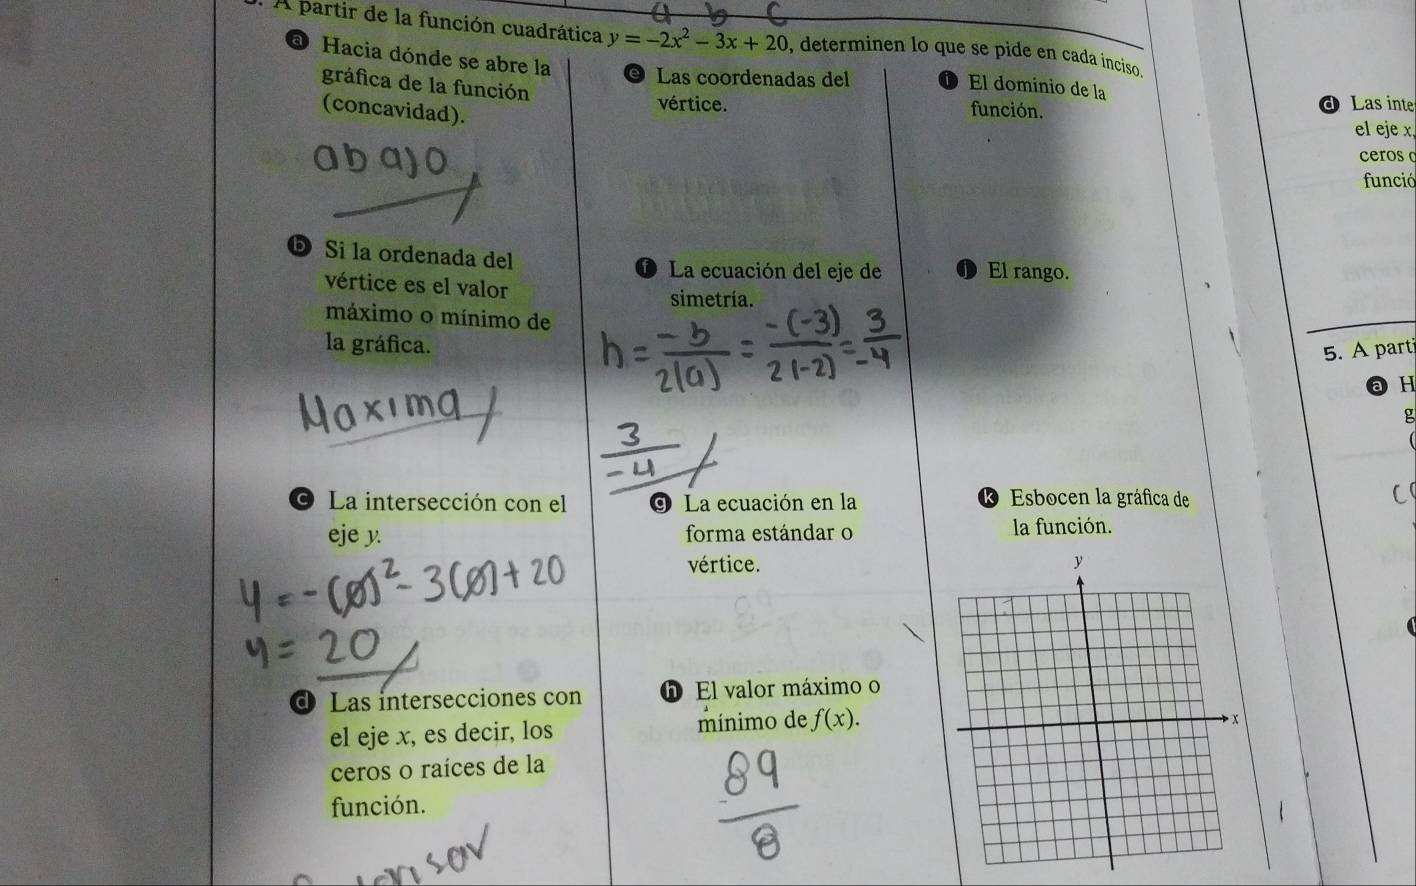 A partir de la función cuadrática y = −2x² − 3x + 20, determinen lo que se pide en cada inciso.
a b c
a Hacia dónde se abre la
gráfica de la función
(concavidad).
abajo
b Si la ordenada del
vértice es el valor
máximo o mínimo de
la gráfica.
Maxima
c La intersección con el
eje y.
y = -(0)² - 3(0) + 20
y = 20
d Las intersecciones con
el eje x, es decir, los
ceros o raíces de la
función.
e Las coordenadas del
vértice.
f La ecuación del eje de
simetría.
h = -b/2(a) = -(-3)/2(-2) = 3/-4
3/-4
g La ecuación en la
forma estándar o
vértice.
h El valor máximo o
mínimo de f(x).
89/8
i El dominio de la
función.
j El rango.
k Esbocen la gráfica de
la función.
y
x
d Las inte
el eje x,
ceros o
funció
5. A parti
a H
g
(